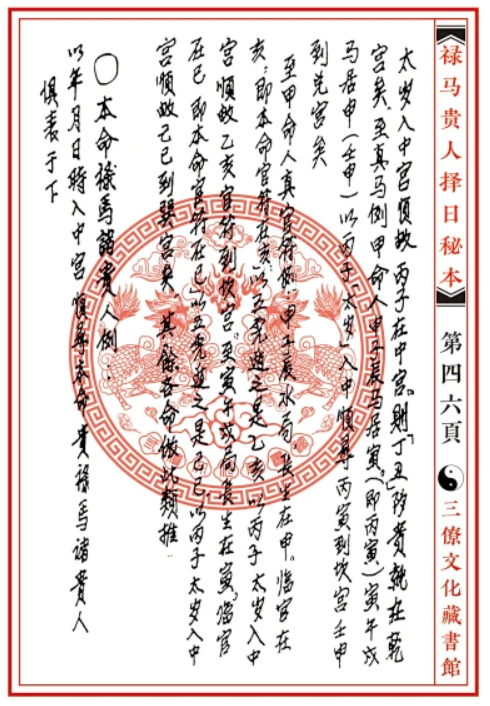 禄马贵人择日秘本
第四六頁
三僚文化藏書館
太岁入中宫顺放 丙子在中宫。则丁丑阴贵就在乾
宫矣。至真马例甲命人申子辰马居寅。(即丙寅)寅午戌
马居申(壬申)以丙子"太岁"入中顺寻丙寅到坎宫壬申
到兑宫矣
至甲命人真官符例：申子辰水局，长生在申，临官在
亥，即本命官符在亥，以五虎遁之是乙亥 以丙子太岁入中
宫顺放乙亥官符到坎宫。至寅午戌局長生在寅，临官
在巳 即本命官符在巳，以五虎遁之是己巳，以丙子太岁入中
宫順放己巳到巽宫矣，其餘各命做此類推
○本命禄馬諸貴人例：
以年月日時入中宫 順尋本命貴禄馬诸貴人
俱表于下